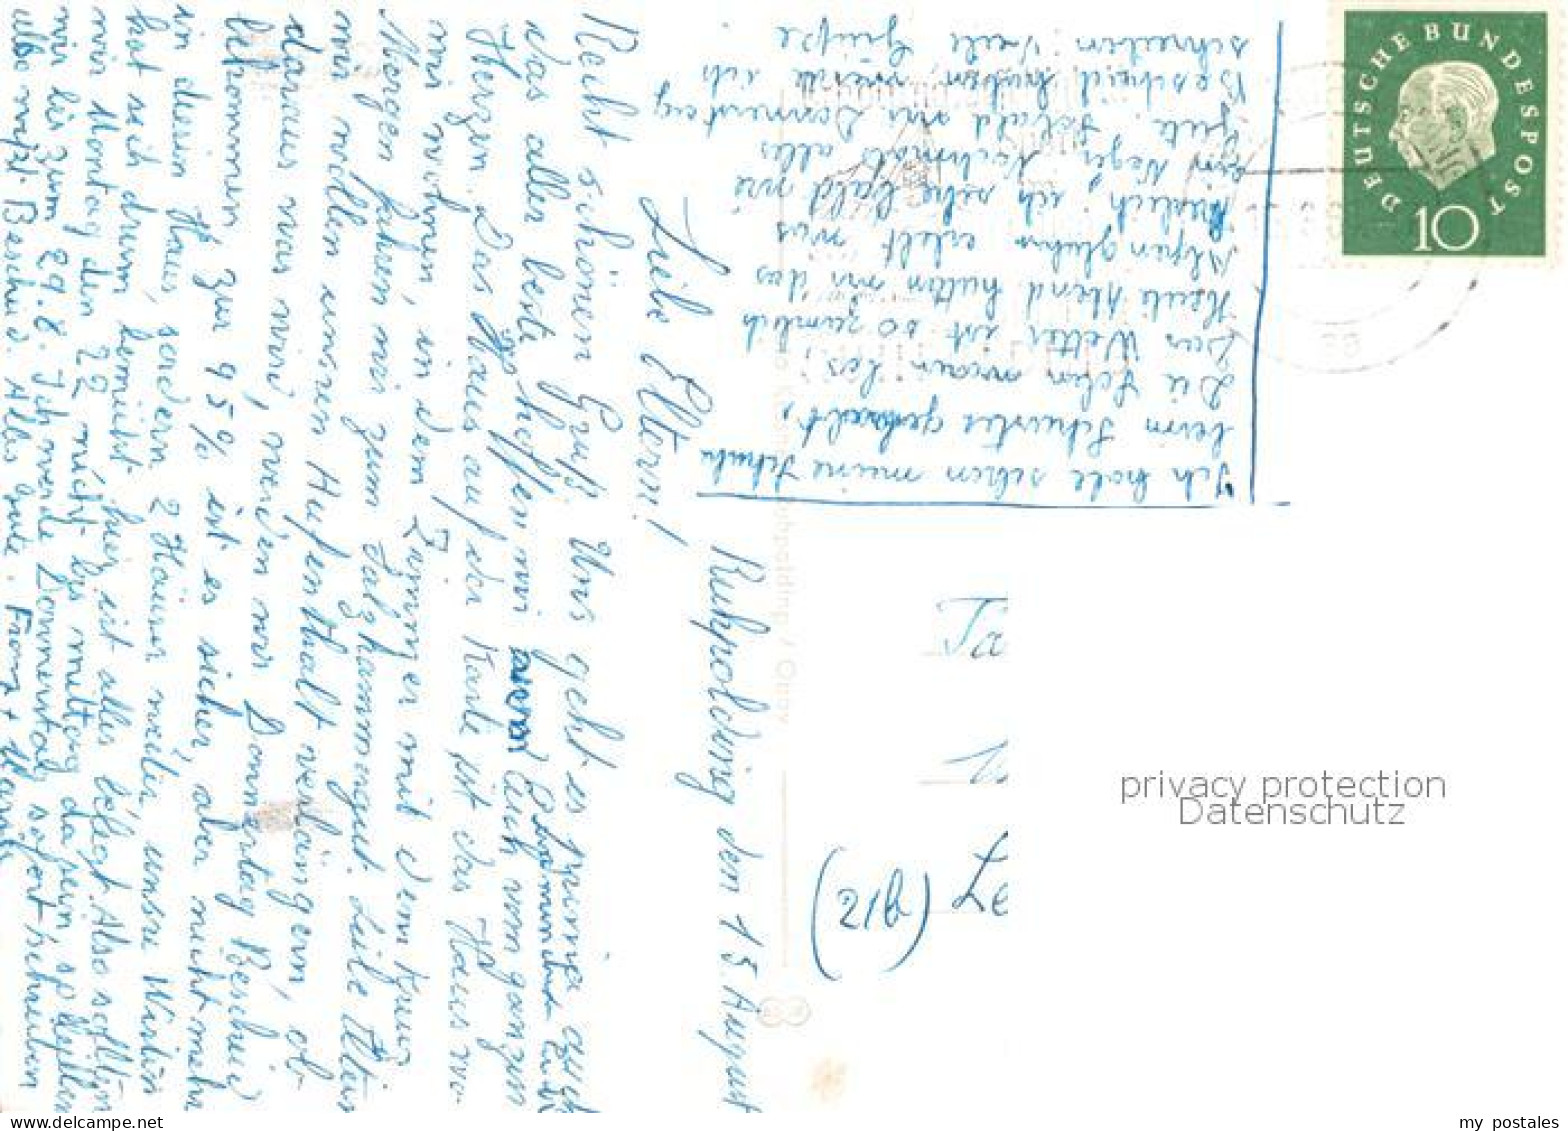 Ruhpolding den 15. August
Liebe Eltern!
Recht schönen Gruß. Uns geht es prima auch
das aller beste hoffen wir von Euch vom ganzen
Herzen. Das Haus auf der Karte ist das Haus wo
wir wohnen, in dem Zimmer mit dem Kreuz
Morgen fahren wir zum Salzkammergut. Liebe Eltern
wir wollen unsren Aufenthalt verlängern, ob
daraus was wird, werden wir Donnerstag Bescheid
bekommen, zur 95% ist es sicher, aber nicht mehr
in diesen Haus, sondern 2 Häuser weiter, unsre Wirtin
hat sich drum bemüht hier ist alles belegt. Also sollten
wir Montag den 22 nicht bis mittag da sein, so bleiben
wir bis zum 29.8. Ich werde Donnerstag sofort schreiben
also nefst Bescheid. Alles gute. Franz +
Ich habe schon meine Schuhe
beim Schuster gebracht,
Die Sohlen waren los,
Das Wetter ist so ziemlich
Heute Abend hatten wir das
Alpenglühen erlebt was
herrlich, ich sehe bald wie
ein Neger, Nochmals alles
gute. Sobald wir Donnerstag
Bescheid haben, werde ich
schreiben. Viele Grüße
(21b) Le
DEUTSCHE BUNDESPOST
10
privacy protection
Datenschutz
my postales